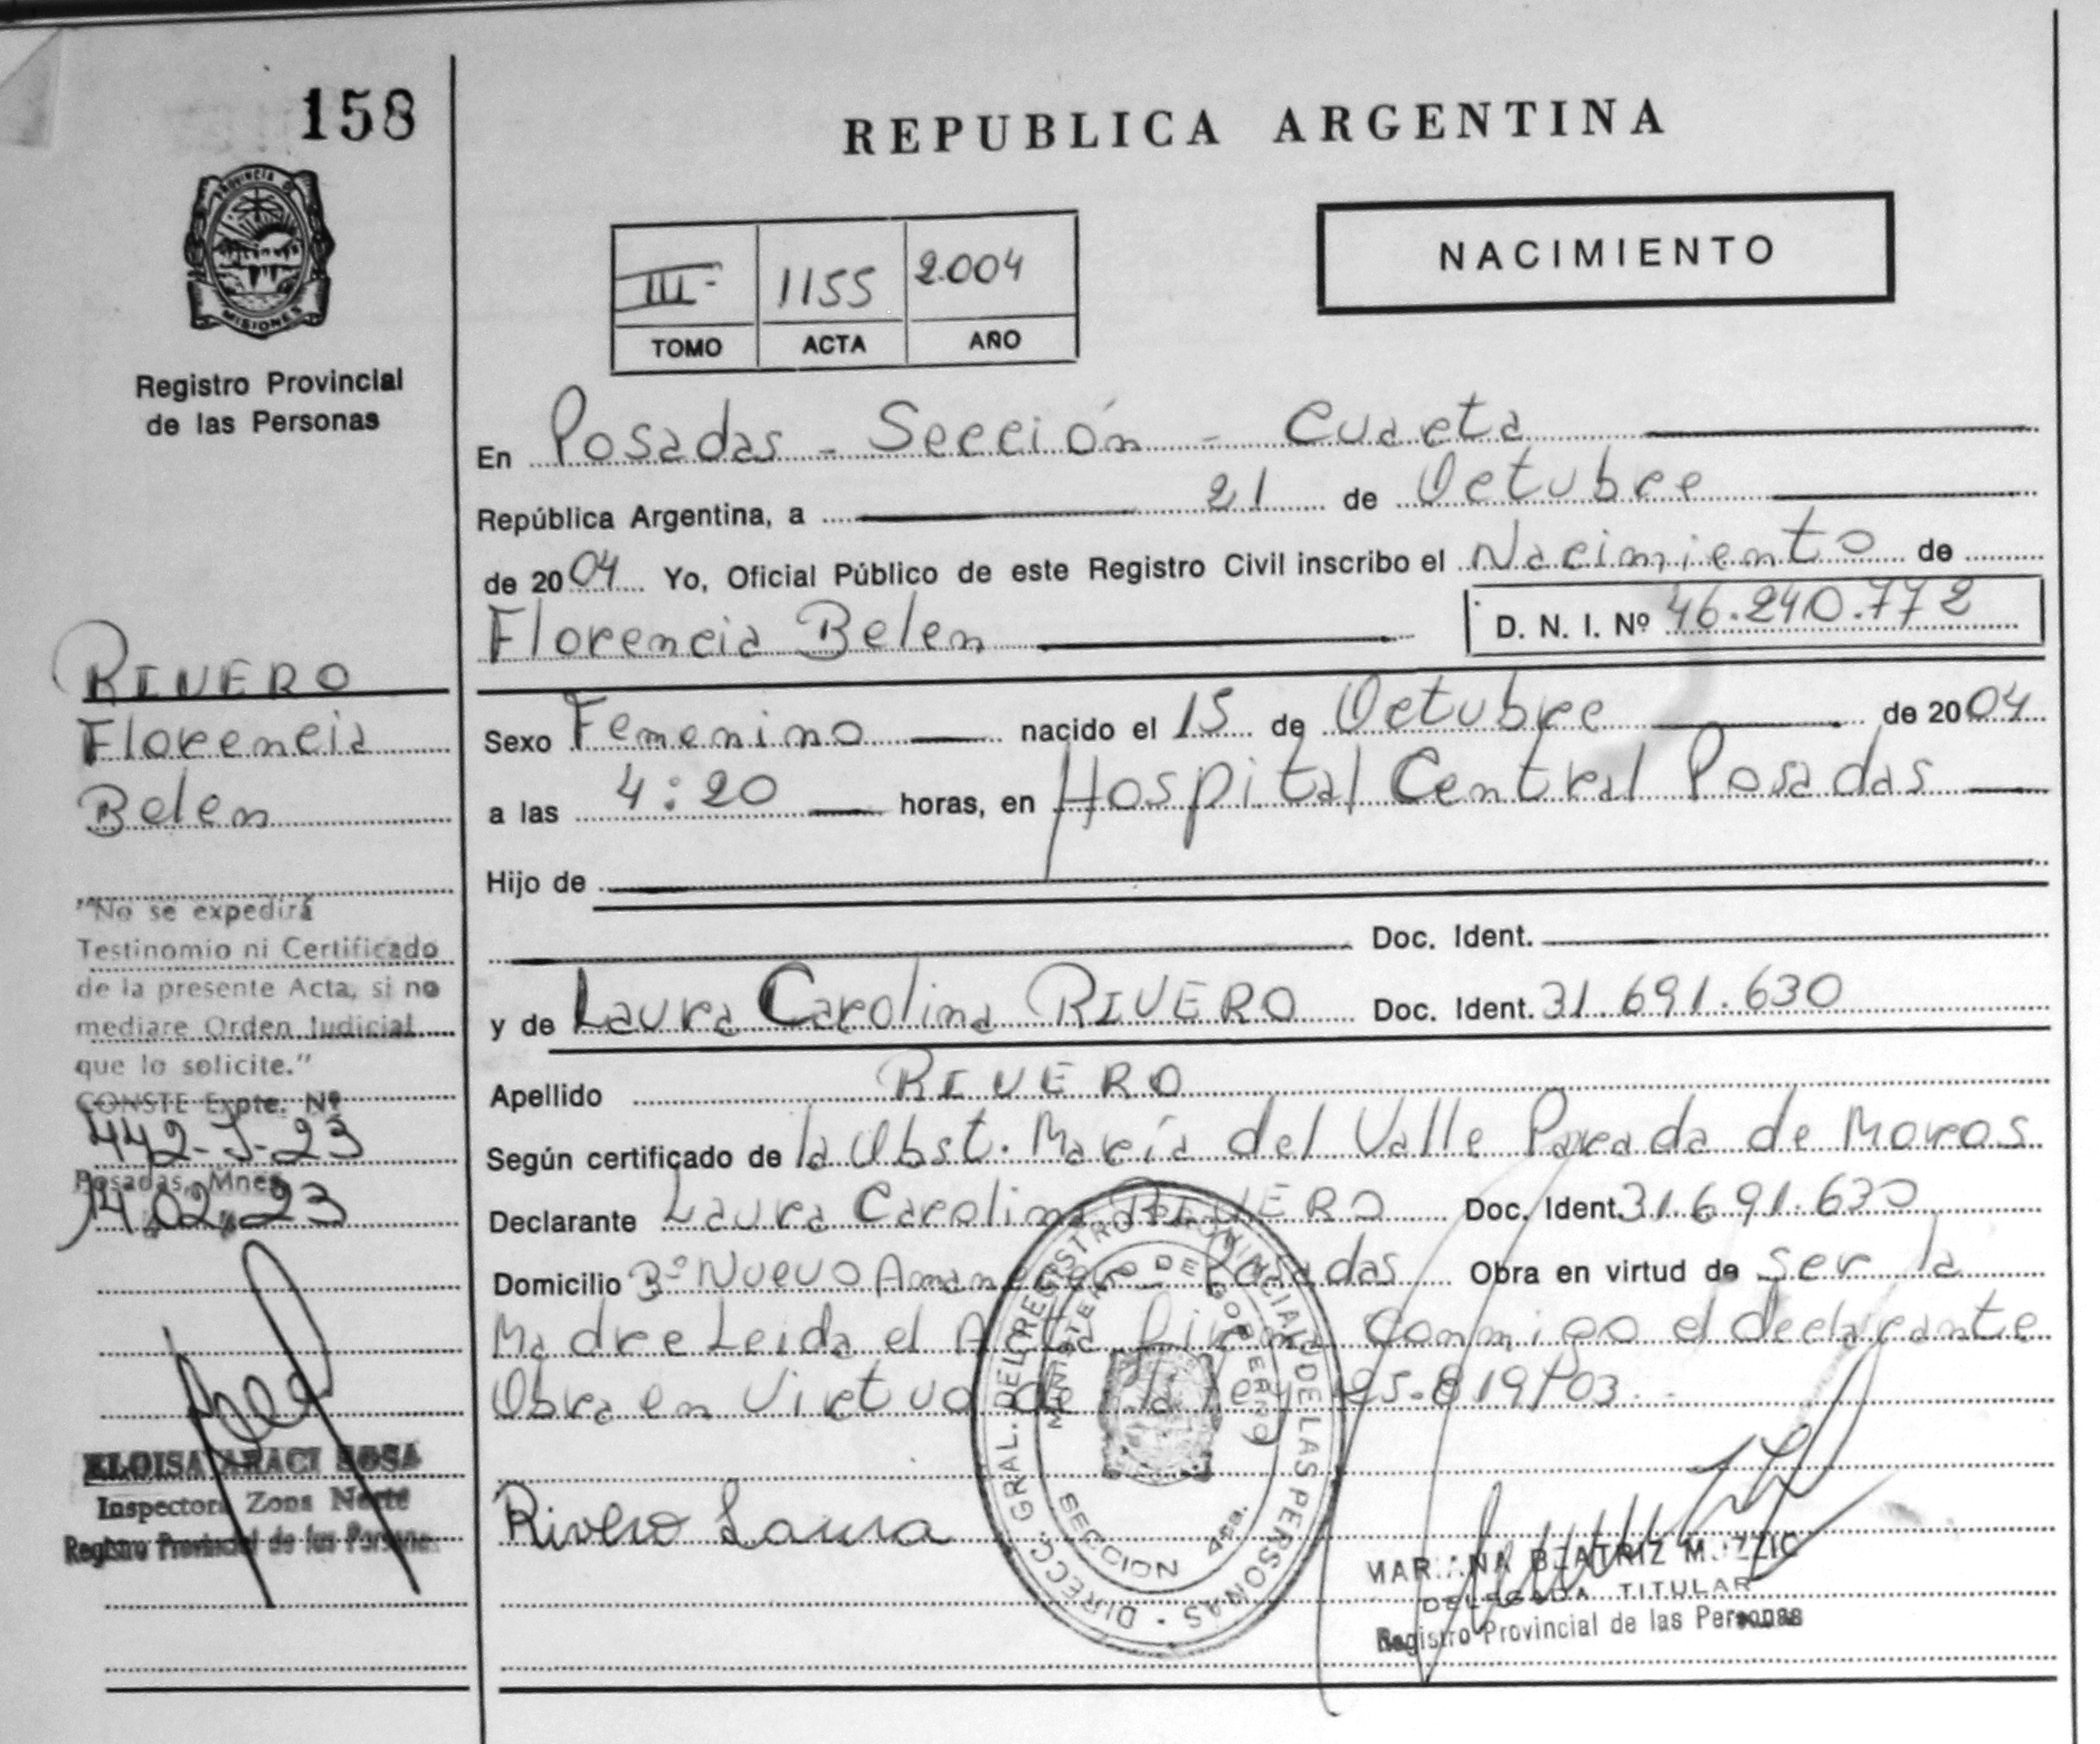 158
PROVINCIA DE
MISIONES
Registro Provincial
de las Personas
RIVERO
Florencia
Belen
"No se expedirá
Testinomio ni Certificado
de la presente Acta, si no
mediare Orden Judicial
que lo solicite."
CONSTE Expte. Nº
442-J-23
Posadas, Mnes
14.02.23
ELOISA ARACI SOSA
Inspectora Zona Norte
Registro Provincial de las Personas
REPUBLICA ARGENTINA
NACIMIENTO
III- 1155 2.004
TOMO ACTA AÑO
En Posadas - Sección - Cuarta
República Argentina, a 21 de Octubre
de 2004 Yo, Oficial Público de este Registro Civil inscribo el Nacimiento de
Florencia Belen D. N. I. Nº 46.240.772
Sexo Femenino nacido el 15 de Octubre de 2004
a las 4:20 horas, en Hospital Central Posadas
Hijo de
Doc. Ident.
y de Laura Carolina RIVERO Doc. Ident. 31.691.630
Apellido RIVERO
Según certificado de la Obst. María del Valle Parada de Moros
Declarante Laura Carolina RIVERO Doc. Ident. 31.691.630
Domicilio Bº Nuevo Amanecer Posadas Obra en virtud de ser la
Madre Leida el Acta Firma Conmigo el declarante
Obra en Virtud de la Ley 25.819/03.-
Rivero Laura
DIRECC. GRAL. DEL REGISTRO PROVINCIAL DE LAS PERSONAS
MINISTERIO DE GOBIERNO
SECCION 4ta.
BEATRIZ
DELEGADA TITULAR
Registro Provincial de las Personas